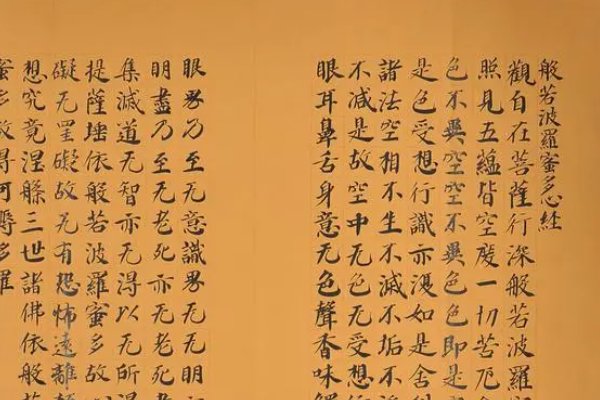 般若波羅蜜多心經
觀自在菩薩行深般若波羅
照見五蘊皆空度一切苦厄
色不異空空不異色色即是
是色受想行識亦復如是舍
諸法空相不生不滅不垢不
不減是故空中无色无受想
眼耳鼻舌身意无色聲香味
眼界乃至无意識界无无明
明盡乃至无老死亦无老死
集滅道无智亦无得以无所
提薩埵依般若波羅蜜多故
礙无罣礙故无有恐怖遠離
想究竟涅槃三世諸佛依般
蜜多故得阿耨多羅